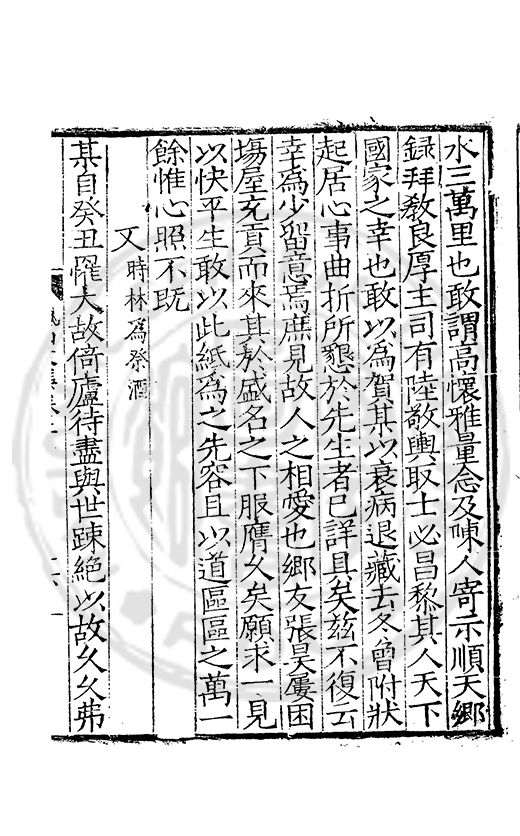 水三萬里也敢謂高懷雅量念及暕人寄示順天鄉
録拜敎良厚主司有陸敬輿取士必昌黎其人天下
國家之幸也敢以為賀某以衰病退藏去冬曾附狀
起居心事曲折所懇於先生者已詳具矣兹不復云
幸為少留意焉庶見故人之相愛也鄉友張昊屢困
塲屋充貢而來其於盛名之下服膺久矣願求一見
以快平生敢以此紙為之先容且以道區區之萬一
餘惟心照不既
又時林為祭酒
某自癸丑罹大故倚廬待盡與世踈絶以故久久弗